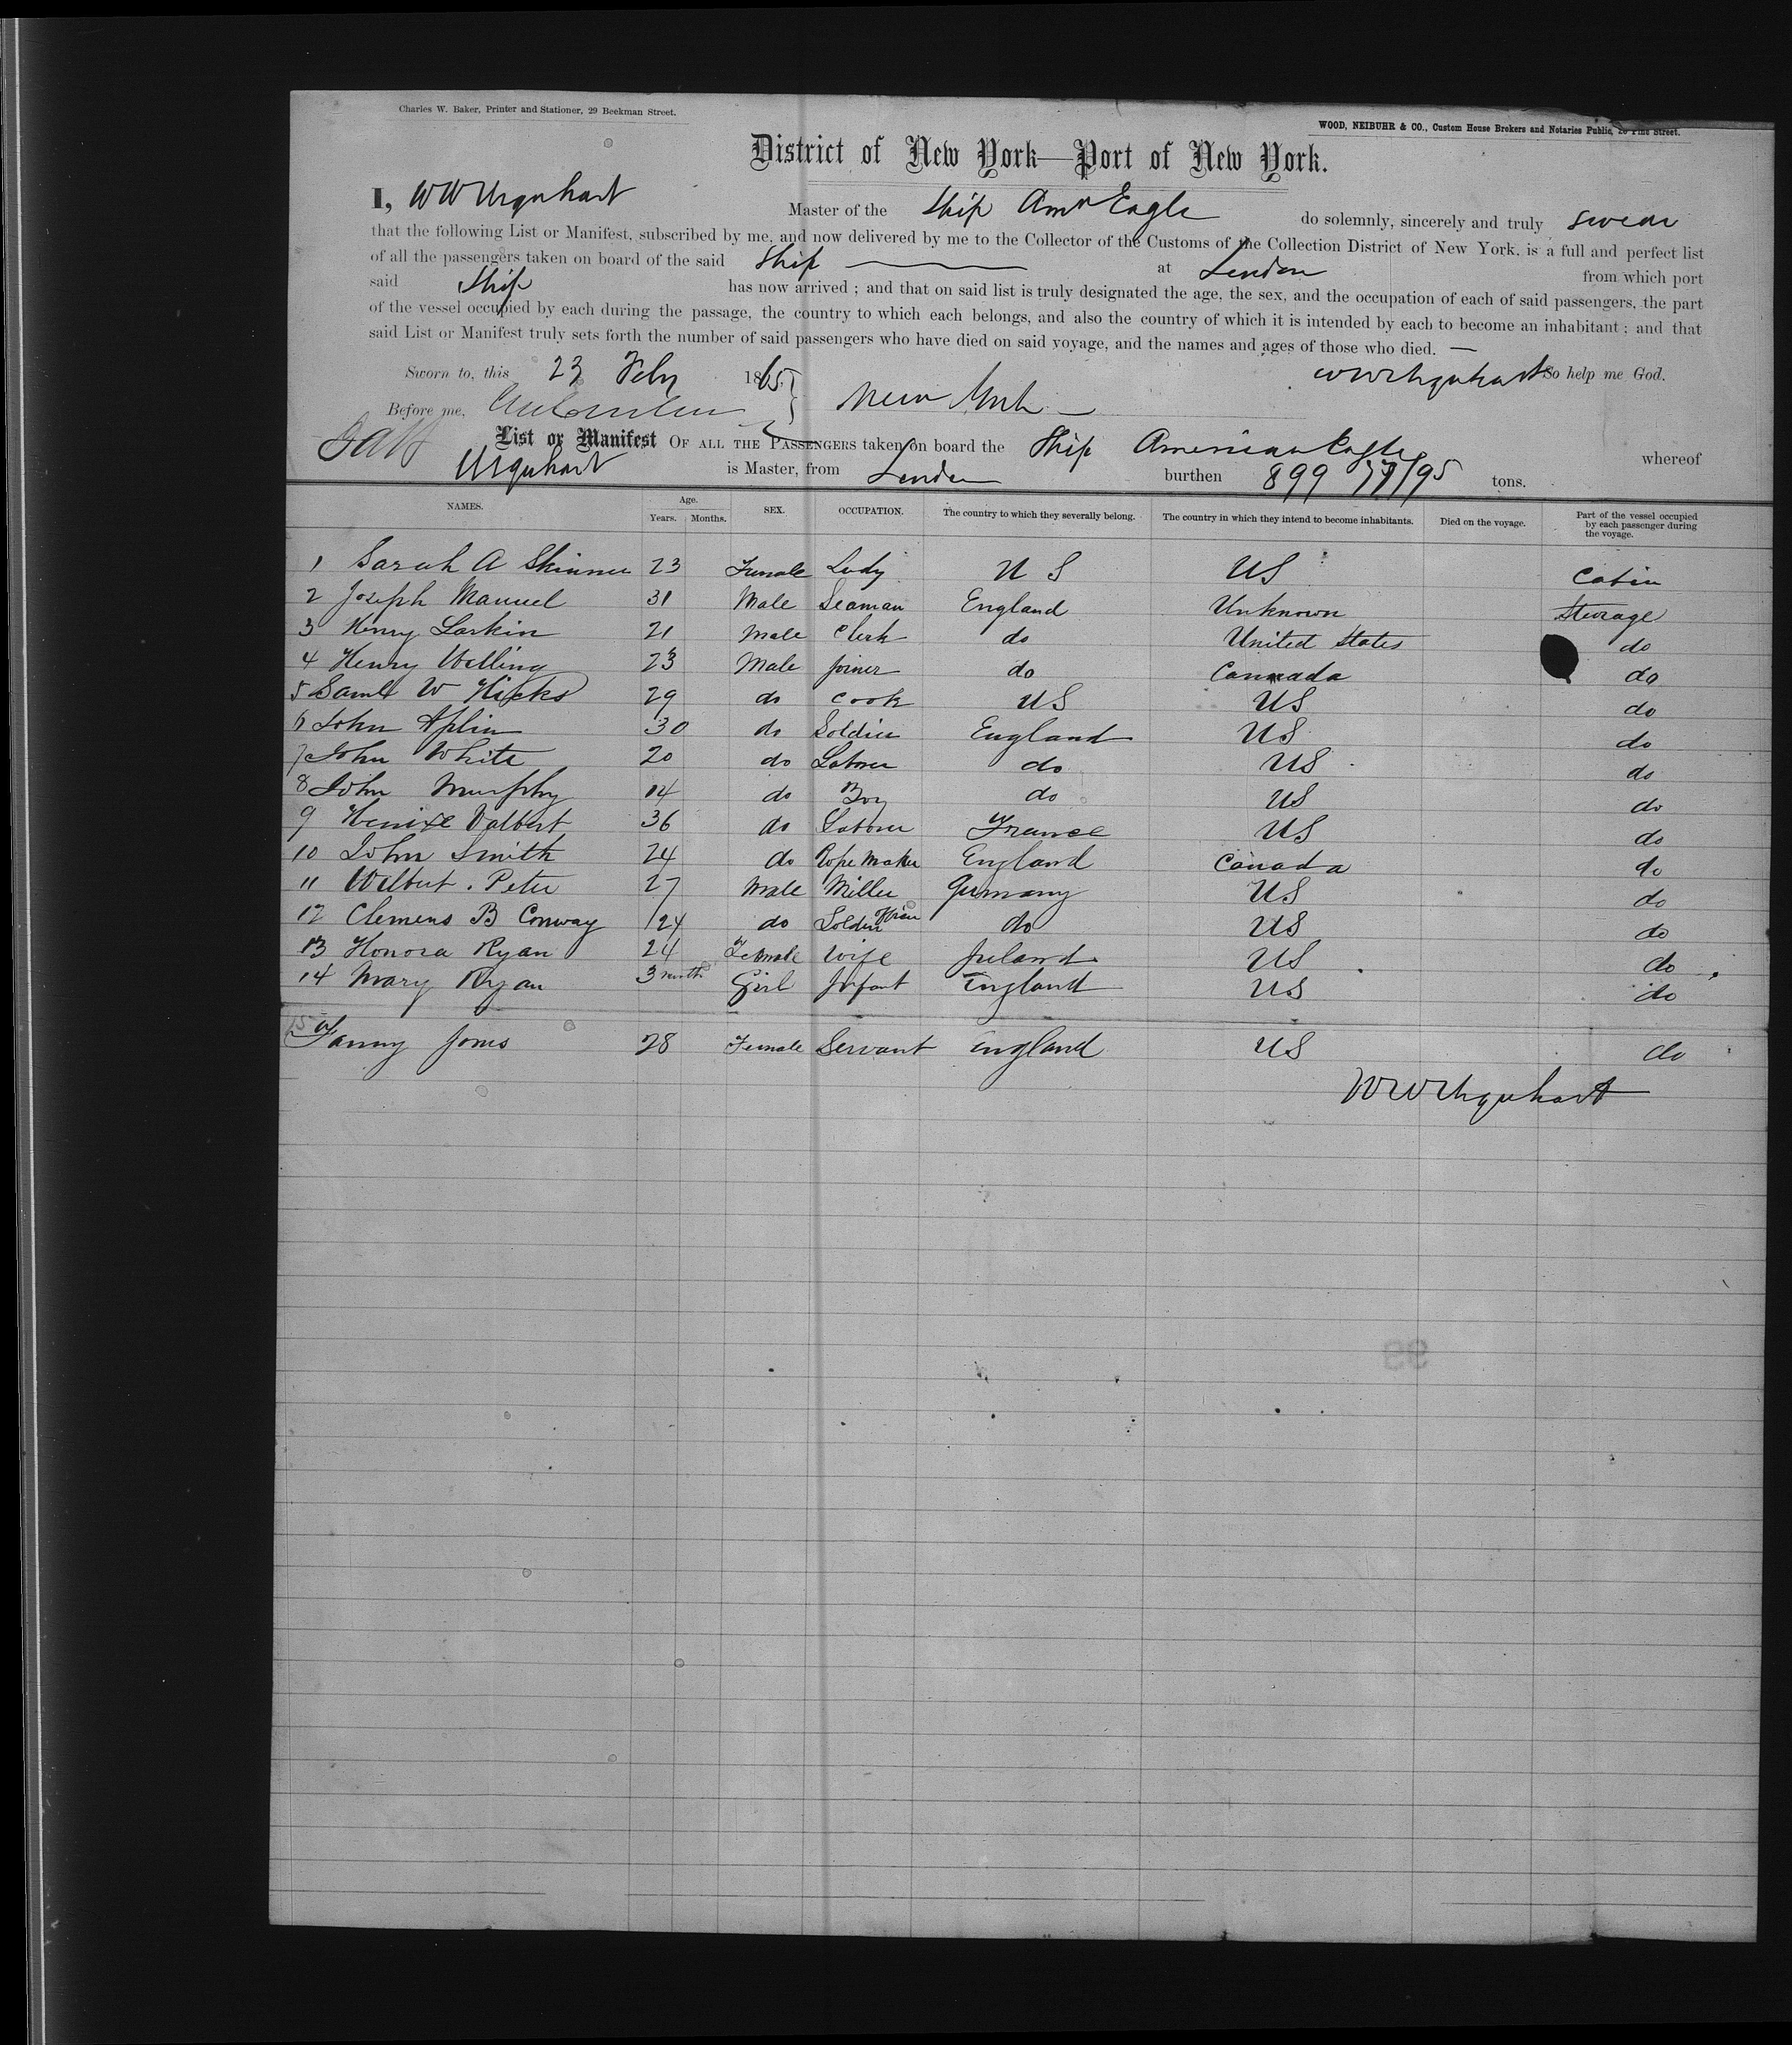 Charles W. Baker, Printer and Stationer, 29 Beekman Street.
WOOD, NEIBUHR & CO., Custom House Brokers and Notaries Public, 26 Pine Street.
District of New York—Port of New York.
I, W W Urquhart Master of the Ship Amn Eagle do solemnly, sincerely and truly swear
that the following List or Manifest, subscribed by me, and now delivered by me to the Collector of the Customs of the Collection District of New York, is a full and perfect list
of all the passengers taken on board of the said Ship at London from which port
said Ship has now arrived ; and that on said list is truly designated the age, the sex, and the occupation of each of said passengers, the part
of the vessel occupied by each during the passage, the country to which each belongs, and also the country of which it is intended by each to become an inhabitant ; and that
said List or Manifest truly sets forth the number of said passengers who have died on said voyage, and the names and ages of those who died. —
Sworn to, this 23 Feby 1865 W W Urquhart So help me God.
Before me, New York —
List or Manifest OF ALL THE PASSENGERS taken on board the Ship American Eagle whereof
Urquhart is Master, from London burthen 899 77/95 tons.
NAMES. Age. Years. Months. SEX. OCCUPATION. The country to which they severally belong. The country in which they intend to become inhabitants. Died on the voyage. Part of the vessel occupied by each passenger during the voyage.
1 Sarah A Skinner 23 Female Lady U S US Cabin
2 Joseph Manuel 31 Male Seaman England Unknown Steerage
3 Henry Larkin 21 Male Clerk do United States do
4 Henry Welling 23 Male Joiner do Cannada do
5 Saml W Hicks 29 do Cook US US do
6 John Aplin 30 do Soldier England US do
7 John White 20 do Laborer do US do
8 John Murphy 14 do Boy do US do
9 Valbert 36 do Laborer France US do
10 John Smith 24 do Rope Maker England Canada do
11 Wilbert . Peter 27 Male Miller Germany US do
12 Clemens B Conway 24 do Soldier do US do
13 Honora Ryan 24 Female Wife Ireland US do
14 Mary Ryan 3 month Girl Infant England US do
15 Fanny Jones 28 Female Servant England US do
W W Urquhart